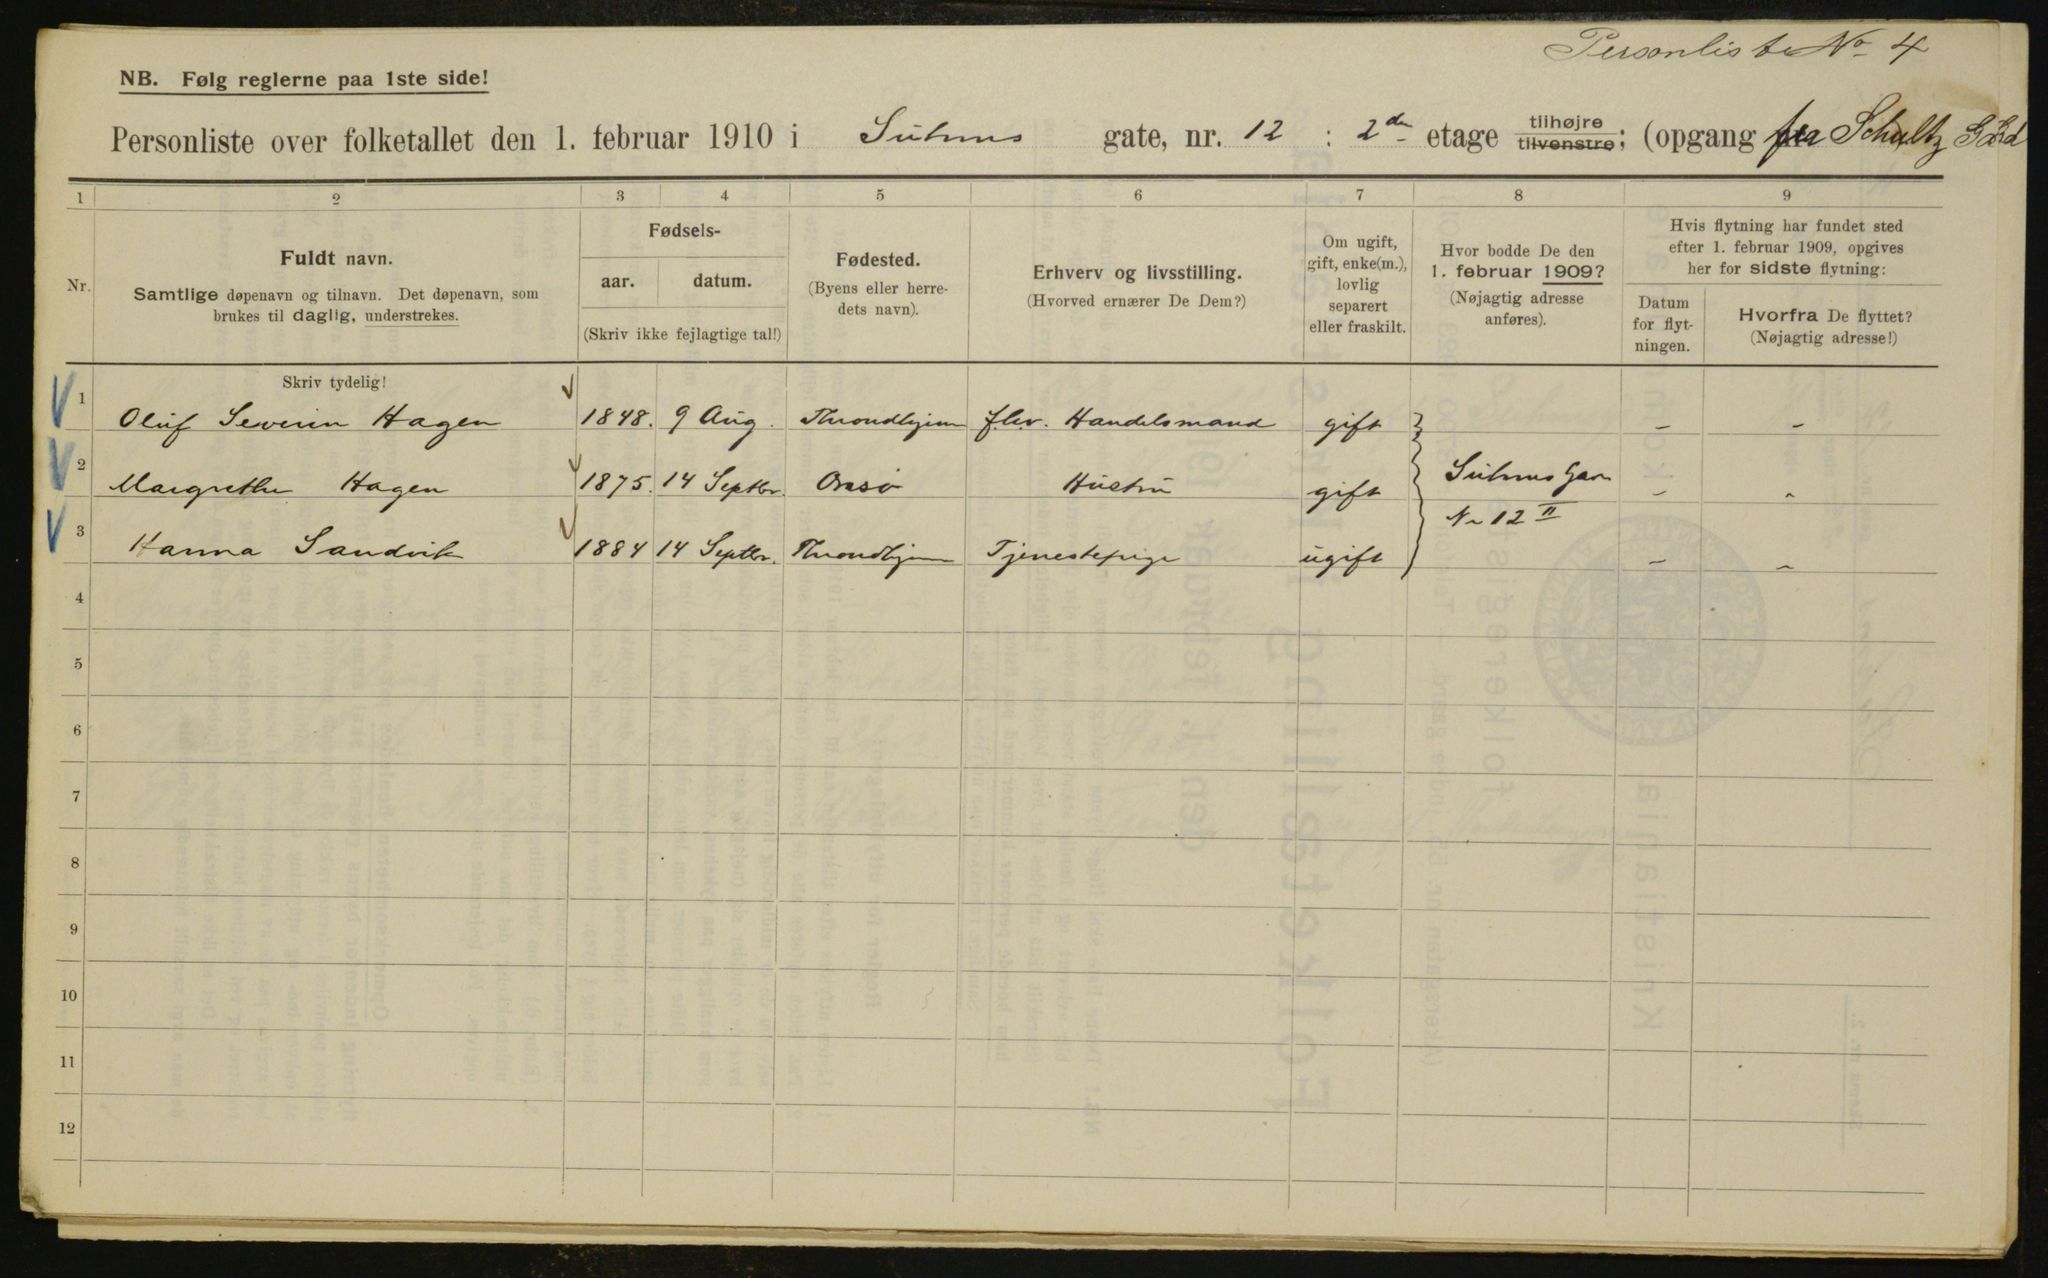 Personliste No 4
NB. Følg reglerne paa 1ste side!
Personliste over folketallet den 1. februar 1910 i Suhms gate, nr. 12 : 2den etage tilhøjre tilvenstre; (opgang fra Schultz Gd
1 2 3 4 5 6 7 8 9
Nr.
Fuldt navn.
Samtlige døpenavn og tilnavn. Det døpenavn, som
brukes til daglig, understrekes.
Fødsels-
aar. datum.
(Skriv ikke fejlagtige tal!)
Fødested.
(Byens eller herre-
dets navn).
Erhverv og livsstilling.
(Hvorved ernærer De Dem?)
Om ugift,
gift, enke(m.),
lovlig
separert
eller fraskilt.
Hvor bodde De den
1. februar 1909?
(Nøjagtig adresse
anføres).
Hvis flytning har fundet sted
efter 1. februar 1909, opgives
her for sidste flytning:
Datum
for flyt-
ningen.
Hvorfra De flyttet?
(Nøjagtig adresse!)
Skriv tydelig!
1 Oluf Severin Hagen 1848. 9 Aug. Throndhjem flv. Handelsmand gift – –
2 Margrethe Hagen 1875. 14 Septbr. Hustru gift Suhmsgae – –
No 12 II
3 Hanna Sandvik 1884 14 Septbr. Throndhjem Tjenestepige ugift – –
4
5
6
7
8
9
10
11
12